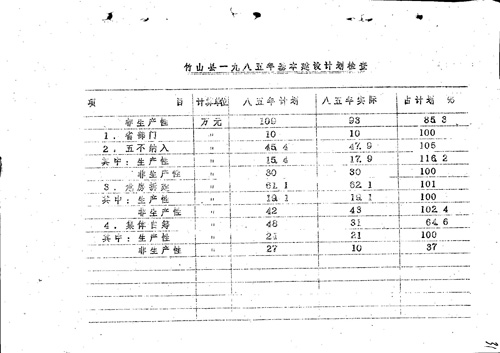 竹山县一九八五年基本建设计划检查
项 目 计算单位 八五年计划 八五年实际 占计划 %
非生产性 万元 109 93 85.3
1、省部门 〃 10 10 100
2、五不纳入 〃 45.4 47.9 105
其中：生产性 〃 15.4 17.9 116.2
非生产性 〃 30 30 100
3、 〃 61.1 62.1 101
其中：生产性 〃 19.1 19.1 100
非生产性 〃 42 43 102.4
4、集体自筹 〃 48 31 64.6
其中：生产性 〃 21 21 100
非生产性 〃 27 10 37